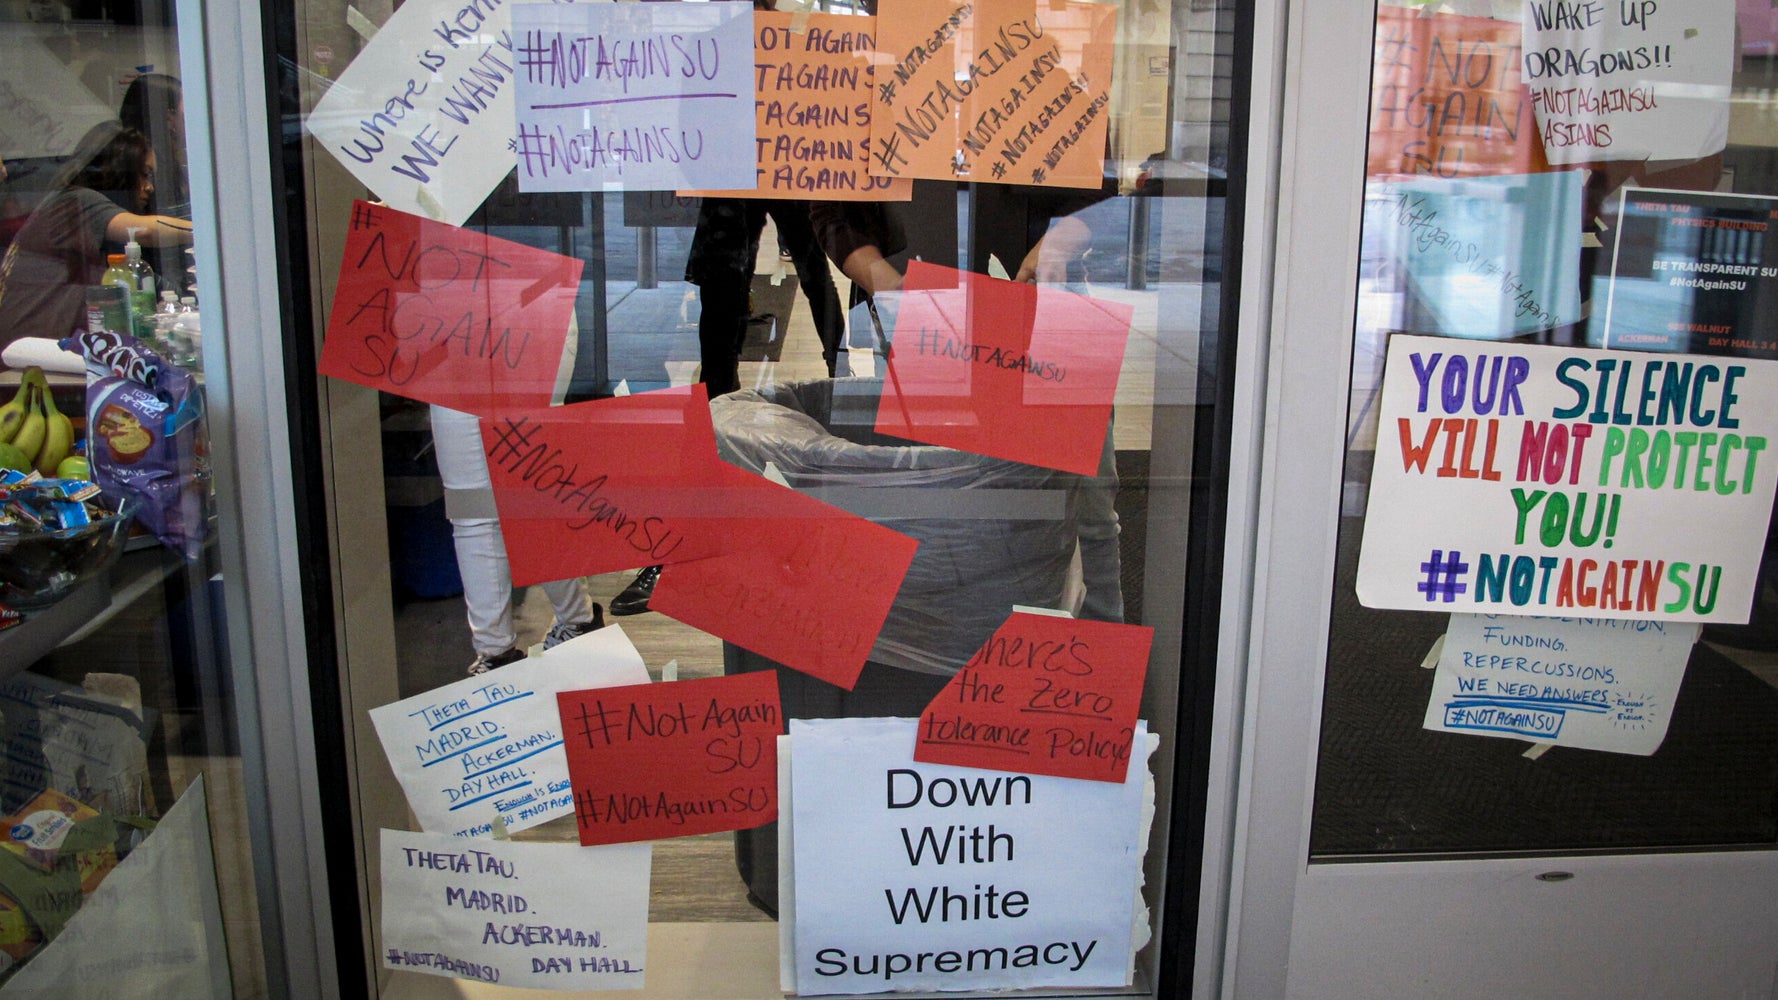 Where is Ken
WE WANT
#NOTAGAINSU
#NOTAGAINSU
OT AGAIN
TAGAINS
TAGAINS
TAGAINS
TAGAINSU
#NOTAGAINSU
#NOTAGAINSU
#NOTAGAINSU
#NOTAGAINSU!!
#NOTAGAINSU
#NOT
AGAIN
SU
WAKE UP
DRAGONS!!
#NOTAGAINSU
ASIANS
#
NOT
AGAIN
SU
#NOTAGAINSU
#NotAgainSU #NotAgainS
THETA TAU
PHYSICS BUILDING
BE TRANSPARENT SU
#NotAgainSU
WALNUT
ACKERMAN
DAY HALL 3 4
YOUR SILENCE
WILL NOT PROTECT
YOU!
#NOTAGAINSU
#NotAgainSU
FUNDING.
REPERCUSSIONS.
WE NEED ANSWERS
ENOUGH
IS
ENOUGH.
#NOTAGAINSU
Where's
the Zero
tolerance Policy?
THETA TAU.
MADRID.
ACKERMAN.
DAY HALL.
ENOUGH IS ENOU
#NOTAGA
#NotAgain
SU
#NotAgainSU
THETA TAU.
MADRID.
ACKERMAN.
#NOTAGAINSU DAY HALL.
Down
With
White
Supremacy